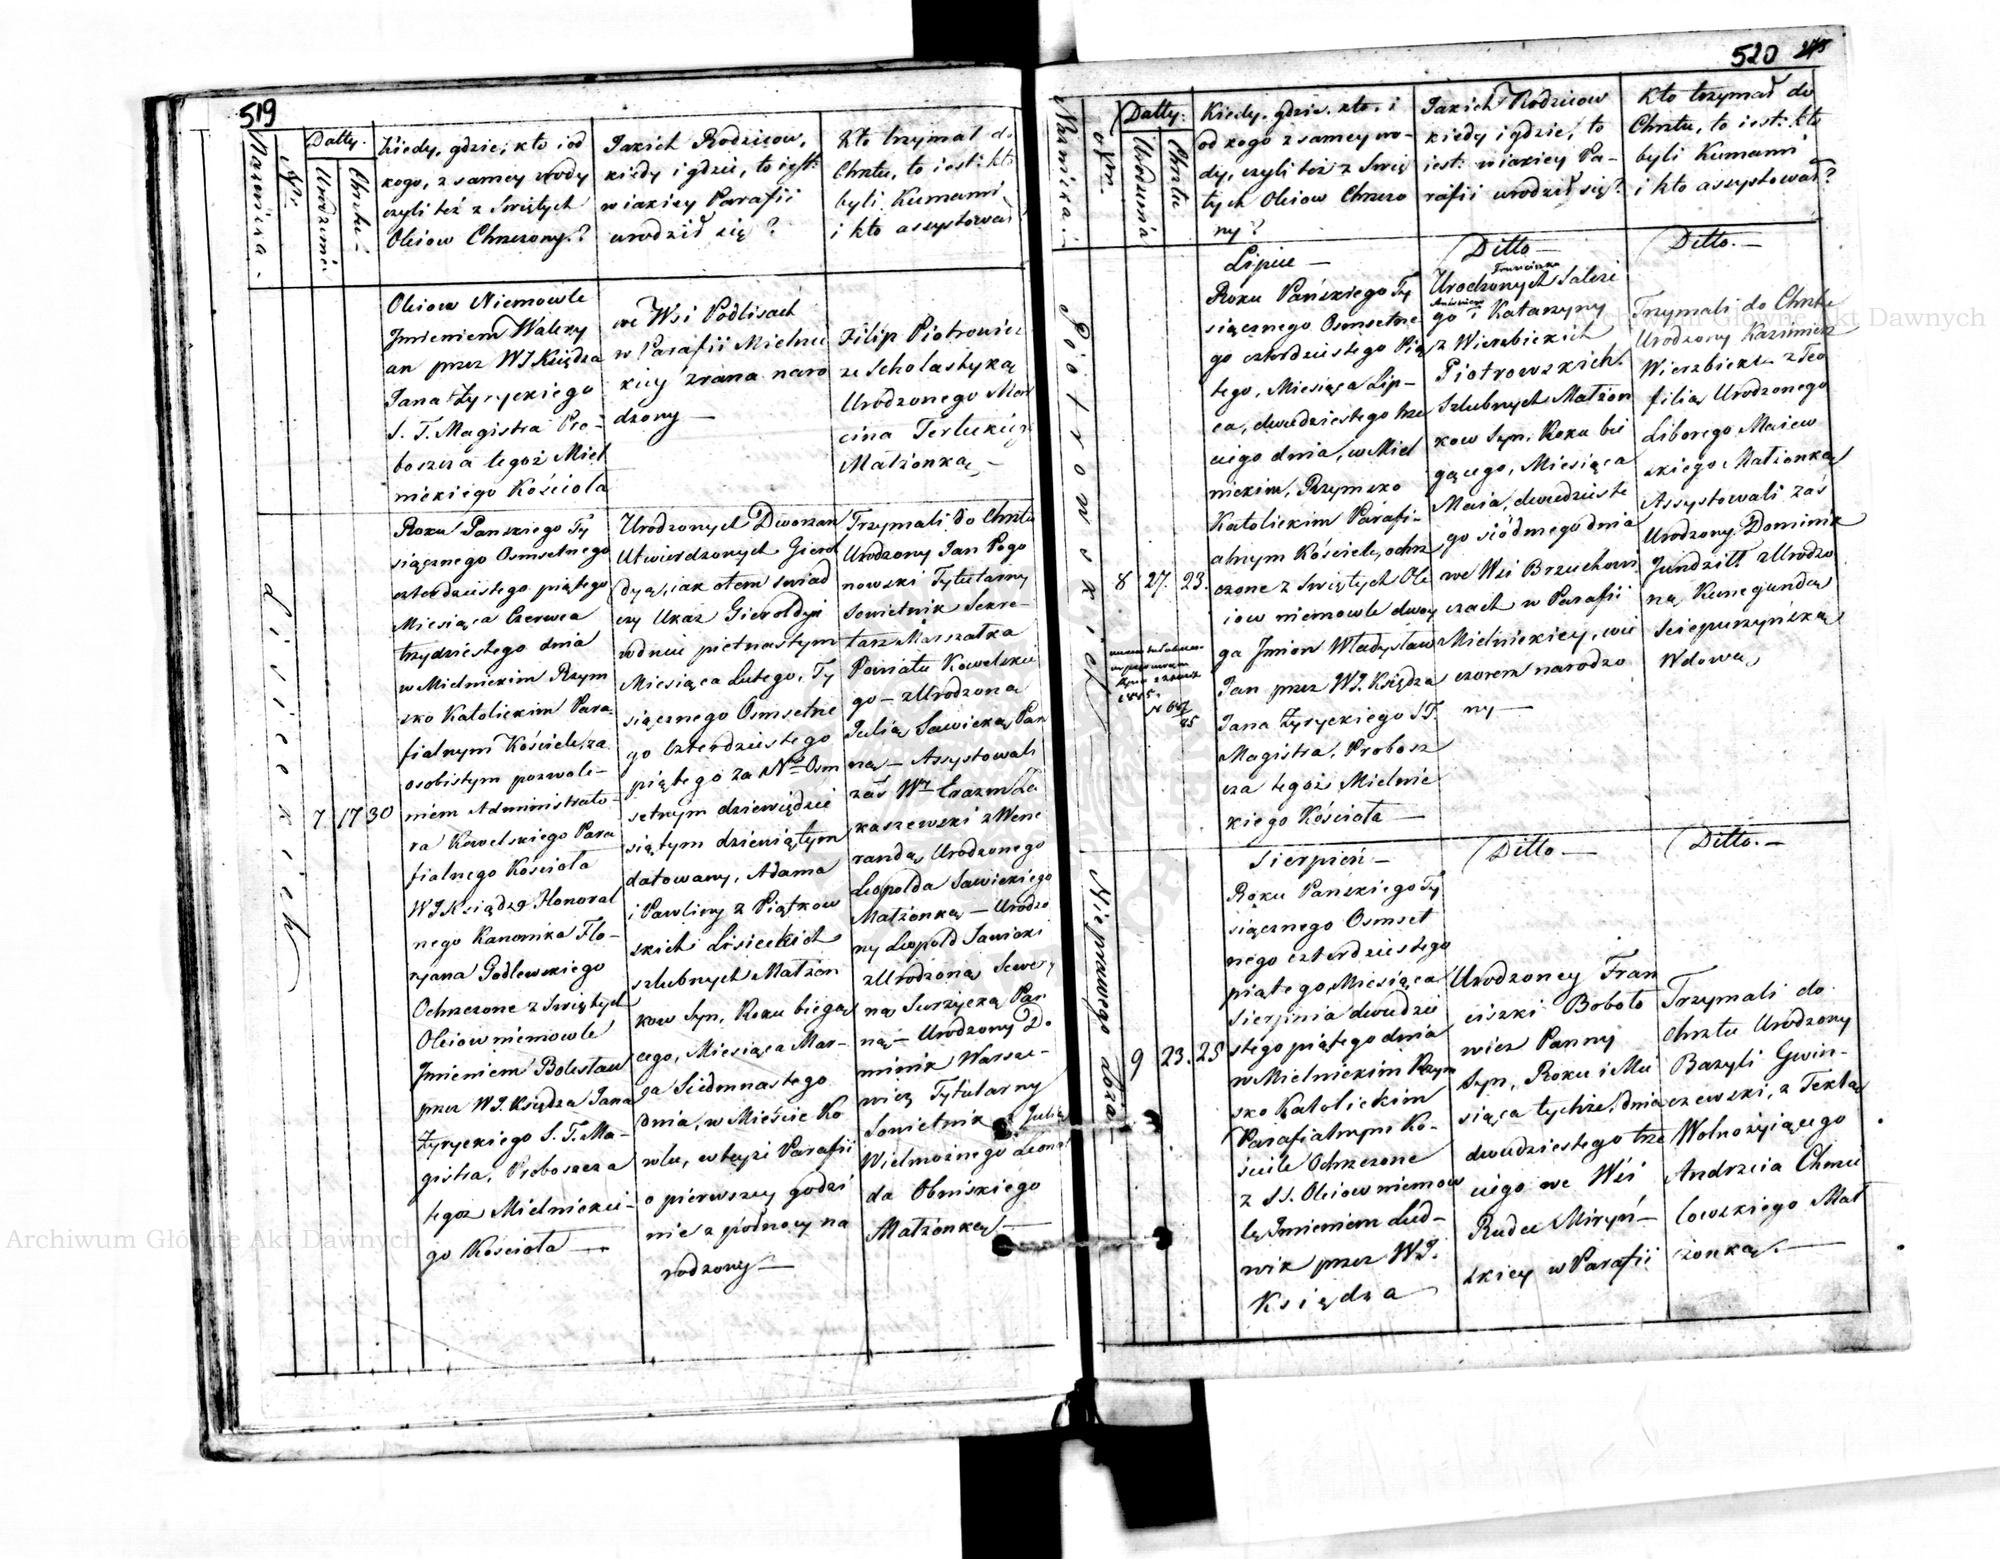 519
Nazwiska.
Nr.
Datty.
Urodzenia
Chrztu
Kiedy, gdzie, kto i od
kogo, z samey wody
czyli też z Swiętych
Oleiow Chrzczony?
Jakich Rodzicow,
kiedy i gdzie, to iest:
w iakiey Parafii
urodził się?
Kto trzymał do
Chrztu, to iest: kto
byli Kumami,
i kto assystował
Oleiow Niemowle
Jmieniem Walery
an przez WJ Księdza
Jana Żyryckiego
S. T. Magistra Pro-
boszcza tegoż Miel
nickiego Kościoła
we Wsi Podlisach
w Parafii Mielni
ckiey zrana naro
dzony —
Filip Piotrowicz
ze Scholastyką
Urodzonego Mar
cina Terleckiego
Małżonką —
Lisieckich
7.
17
30
Roku Panskiego Ty
siącznego Osmsetnego
czterdziestego piątego
Miesiąca Czerwca
trzydziestego dnia
w Mielnickim Rzym
sko Katolickim Para-
fialnym Kościele, za
osobistym pozwole-
niem Administrato-
ra Kowelskiego Para
fialnego Kościoła
WJ Księdza Honoral
nego Kanonika Flo-
ryana Godlewskiego
Ochrzczone z Swiętych
Oleiow niemowle
Jmieniem Bolesław
przez WJ. Księdza Jana
Żyryckiego S. T. Ma-
gistra, Proboszcza
tegoż Mielnickie-
go Kościoła —
Urodzonych Dworzan
Utwierdzonych Gierol
dyą, iak o tem swiad
czy Ukaz Gieroldyi
w dniu pietnastym
Miesiąca Lutego, Ty
siącznego Osmsetne
go Czterdziestego
piątego za No Osm
setnym dziewiędzie
siątym dziewiątym
datowany, Adama
i Pawliny z Piątkow
skich Lisieckich
szlubnych Małżon
kow Syn, Roku bieżą
cego, Miesiąca Mar-
ca Siedmnastego
dnia, w Mieście Ko
wlu, w teyże Parafii
o pierwszey godzi
nie z północy na
rodzony —
Trzymali do Chrztu
Urodzony Jan Pogo
nowski Tytularny
Sowietnik Sekre-
tarz Marszałka
Powiatu Kowelskie
go — z Urodzoną
Julią Sawicką Pan
ną — Assystowali
zaś Wny Erazm Łu
kaszewski z Wene
randą Urodzonego
Leopolda Sawickiego
Małżonką — Urodzo
ny Leopold Sawicki
z Urodzoną Sewery
ną Surzycką Pan
ną — Urodzony Do
minik Warsze-
wicz Tytularny
Sowietnik z Julią
Wielmożnego Leonar
da Obniskiego
Małżonką —
520
Nazwiska.
Nr.
Datty.
Urodzenia
Chrztu
Kiedy, gdzie, kto, i
od kogo z samey wo-
dy, czyli też z Swię
tych Oleiow Chrzczo
ny?
Jakich Rodzicow
kiedy i gdzie, to
iest: w iakiey Pa-
rafii urodził się?
Kto trzymał do
Chrztu, to iest: kto
byli Kumami
i kto assystował?
Piotrowskich
8
27.
23.
Lipiec —
Roku Pańskiego Ty
siącznego Osmsetne
go czterdziestego Pią
tego, Miesiąca Lip-
ca, dwudziestego trze
ciego dnia, w Miel
nickim, Rzymsko
Katolickim Parafi-
alnym Kościele, ochrz
czone z Swiętych Ole
iow niemowle dwoy
ga Jmion Władysław
Jan przez WJ. Księdza
Jana Żyryckiego S T.
Magistra, Probosz
cza tegoż Mielnic
kiego Kościoła —
Ditto —
Franciszka
Urodzonych Salezi
go i Katarzyny
z Wierzbickich
Piotrowskich
Szlubnych Małżon
kow Syn, Roku bie
gącego, Miesiąca
Maia, dwudzieste
go siódmego dnia
we Wsi Brzuchowi
czach w Parafii
Mielnickiey, wie
czorem narodzo
ny —
Ditto. —
Trzymali do Chrztu
Urodzony Kazimierz
Wierzbicki z Teo
filią Urodzonego
Liborego Maiew
skiego Małżonką
Assystowali zaś
Urodzony Dominik
Jundziłł z Urodzo
ną Kunegundą
Sciepurzyńską
Wdową
Nieprawego łoża
9
23.
25
Sierpień —
Roku Pańskiego Ty
siącznego Osmset
nego czterdziestego
piątego, Miesiąca
Sierpnia dwudzie
stego piątego dnia
w Mielnickim Rzym
sko Katolickim
Parafialnym Ko-
ściele Ochrzczone
z SS. Oleiow niemow
lę Jmieniem Lud-
wik przez WJ.
Księdza
Ditto —
Urodzoney Fran
ciszki Boboło
wicz Panny
Syn, Roku i Mie
siąca tychże, dnia
dwudziestego trze
ciego we Wsi
Rudce Miryń-
skiey w Parafii
Ditto. —
Trzymali do
chrztu Urodzony
Bazyli Gwin-
czewski, z Teklą
Wolnożyiącego
Andrzeia Chmie
lowskiego Mał
żonką. —
Archiwum Główne Akt Dawnych
Archiwum Główne Akt Dawnych